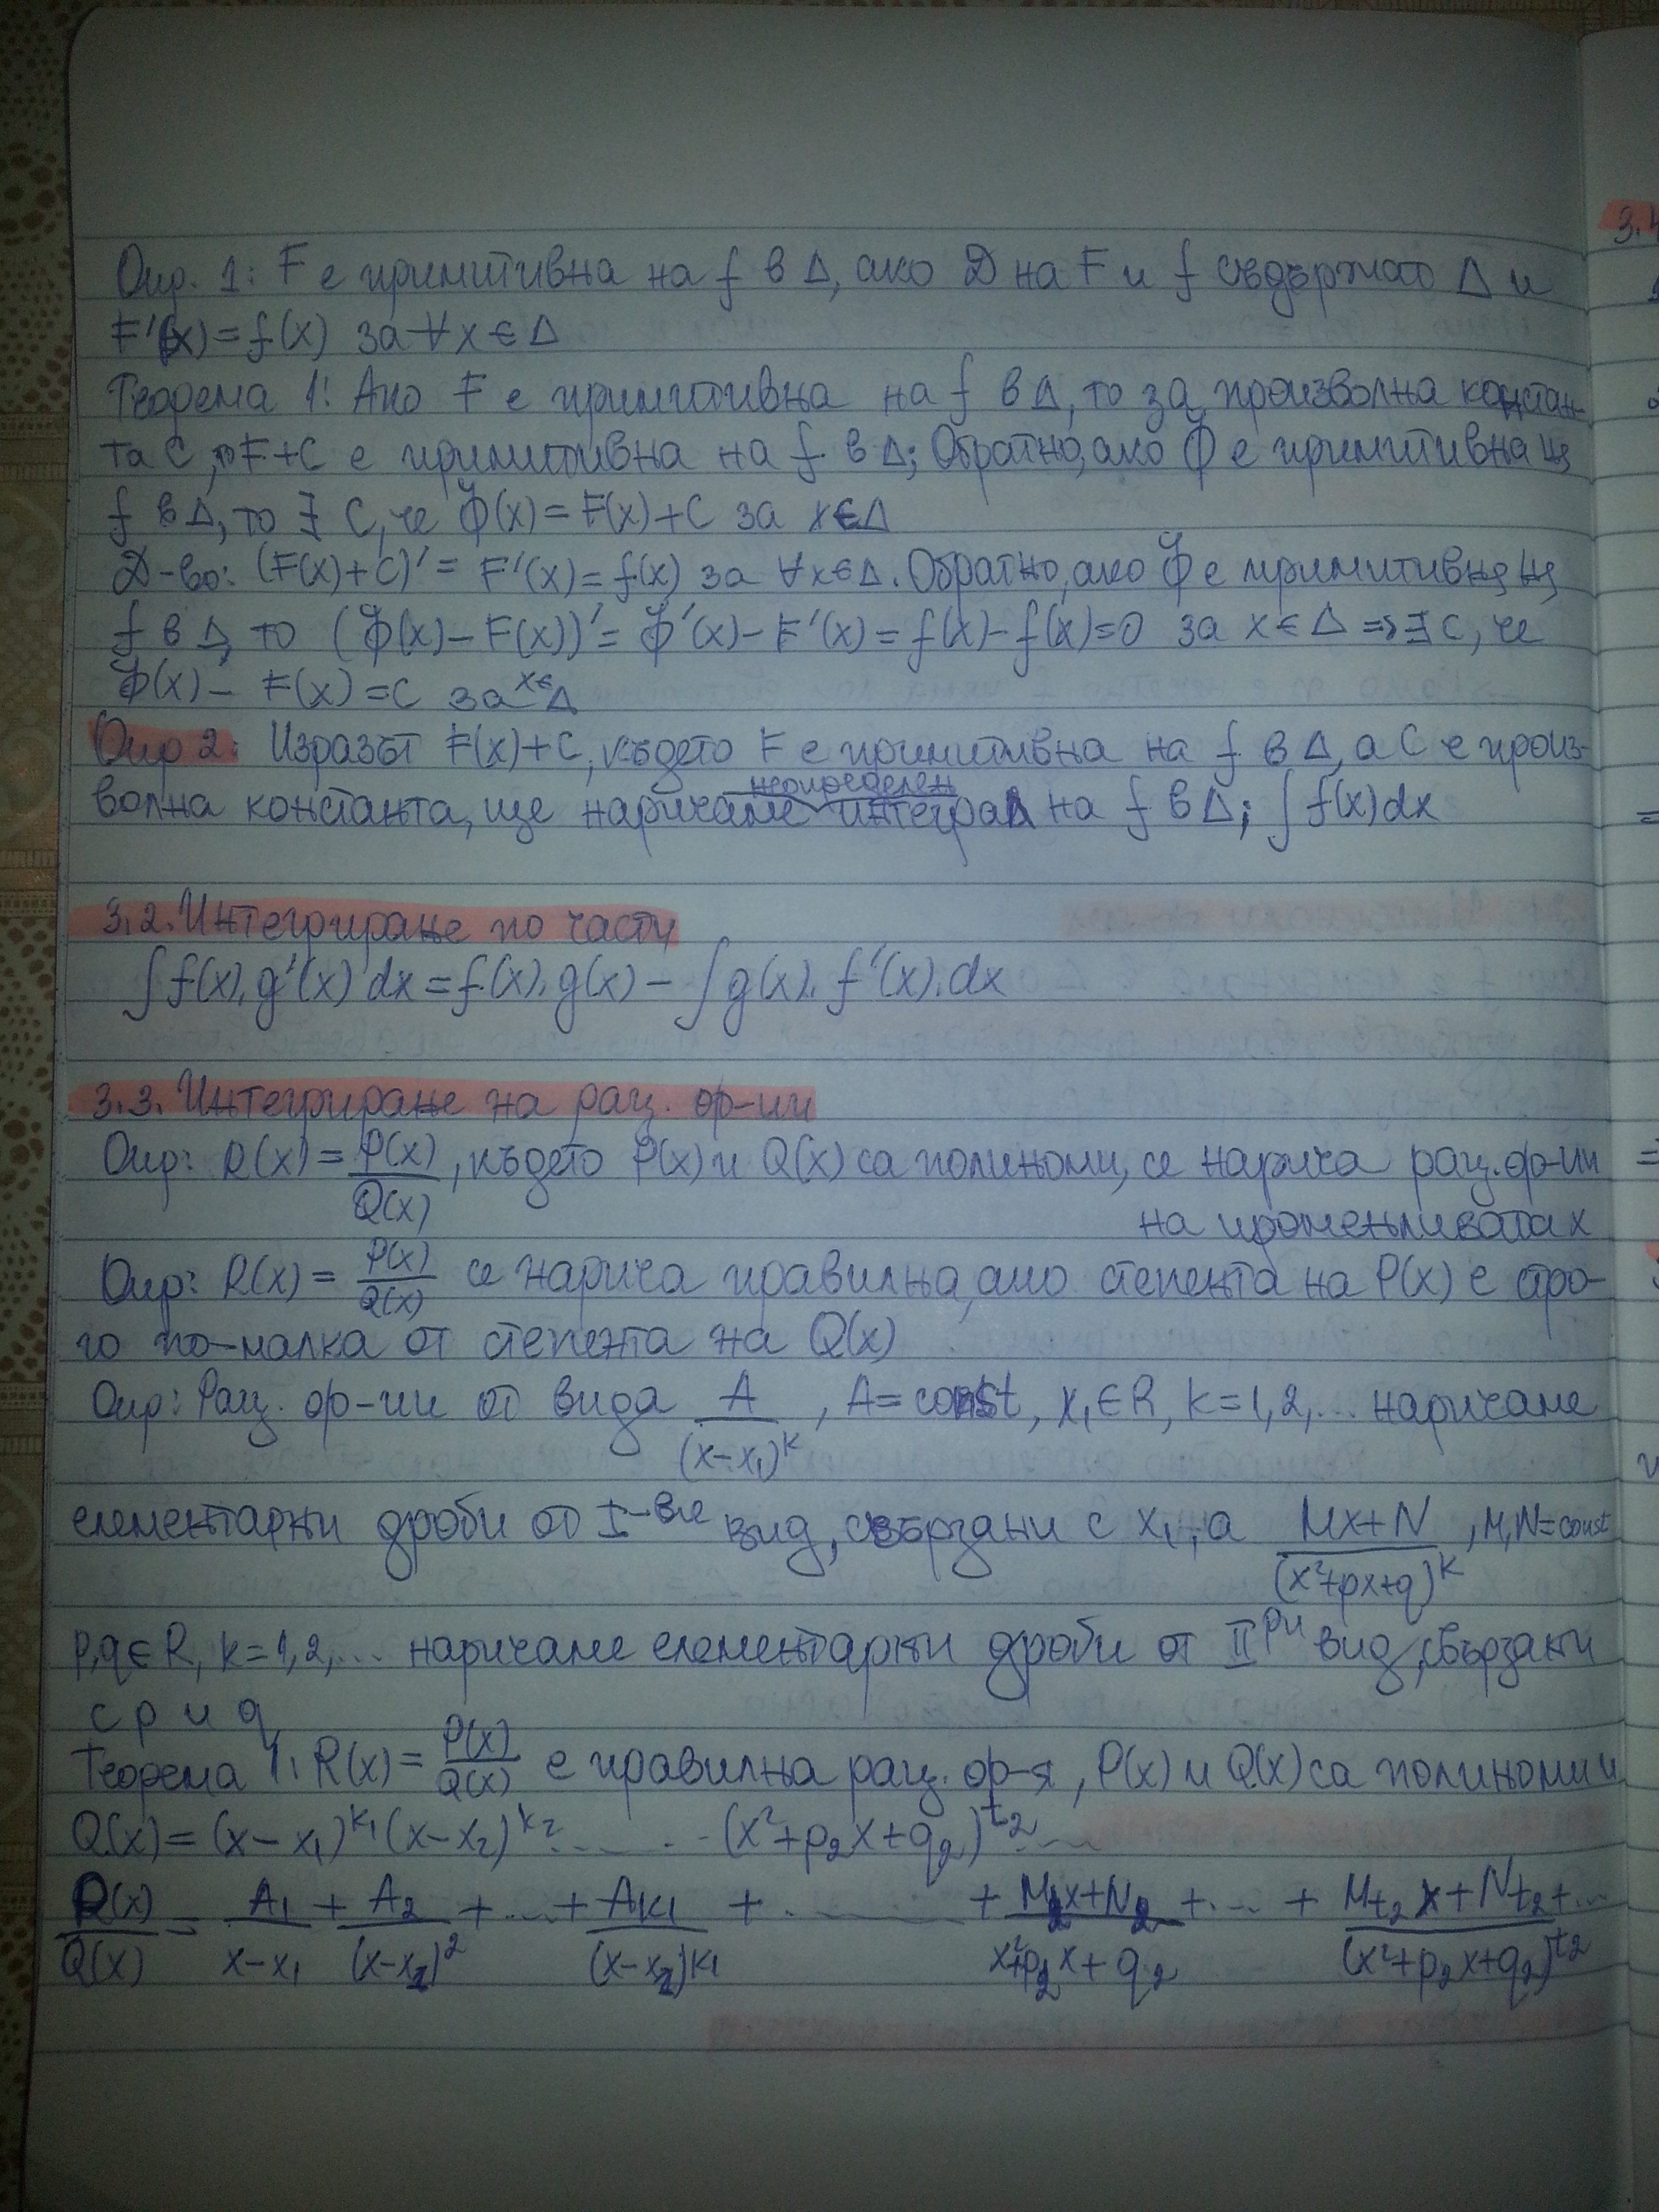 Опр. 1: F е примитивна на f в Δ, ако D на F и f съдържат Δ и
F'(x) = f(x) за ∀x ∈ Δ
Теорема 1: Ако F е примитивна на f в Δ, то за произволна констан-
та C, F+C е примитивна на f в Δ; Обратно, ако Φ е примитивна на
f в Δ, то ∃ C, че Φ(x) = F(x)+C за x∈Δ
Д-во: (F(x)+C)' = F'(x) = f(x) за ∀x∈Δ. Обратно, ако Φ е примитивна на
f в Δ, то (Φ(x) − F(x))' = Φ'(x) − F'(x) = f(x) − f(x) = 0 за x∈Δ => ∃ C, че
Φ(x) − F(x) = C за x∈Δ
Опр 2: Изразът F(x)+C, където F е примитивна на f в Δ, а C е произ-
неопределен
волна константа, ще наричаме интеграл на f в Δ; ∫ f(x)dx
3.2. Интегриране по части
∫ f(x).g'(x) dx = f(x).g(x) − ∫ g(x).f'(x).dx
3.3. Интегриране на рац. ф-ии
Опр: R(x) = P(x)/Q(x), където P(x) и Q(x) са полиноми, се нарича рац. ф-ии
на променливата x
Опр: R(x) = P(x)/Q(x) се нарича правилна, ако степента на P(x) е стро-
го по-малка от степента на Q(x)
Опр: Рац. ф-ии от вида A/(x−x₁)^k, A = const, x₁∈R, k=1,2,... наричаме
елементарни дроби от I-ви вид, свързани с x₁, а (Mx+N)/(x²+px+q)^k, M,N=const
p,q∈R, k=1,2,... наричаме елементарни дроби от II ри вид, свързани
с p и q
Теорема 1: R(x) = P(x)/Q(x) е правилна рац. ф-я, P(x) и Q(x) са полиноми и
Q(x) = (x−x₁)^k₁ (x−x₂)^k₂ ... ... (x²+p₂x+q₂)^t₂ ...
P(x)/Q(x) = A₁/(x−x₁) + A₂/(x−x₂)² + ... + Ak₁/(x−x₂)^k₁ + ... + (M₂x+N₂)/(x²+p₂x+q₂) + ... + (Mt₂x+Nt₂)/(x²+p₂x+q₂)^t₂ + ...